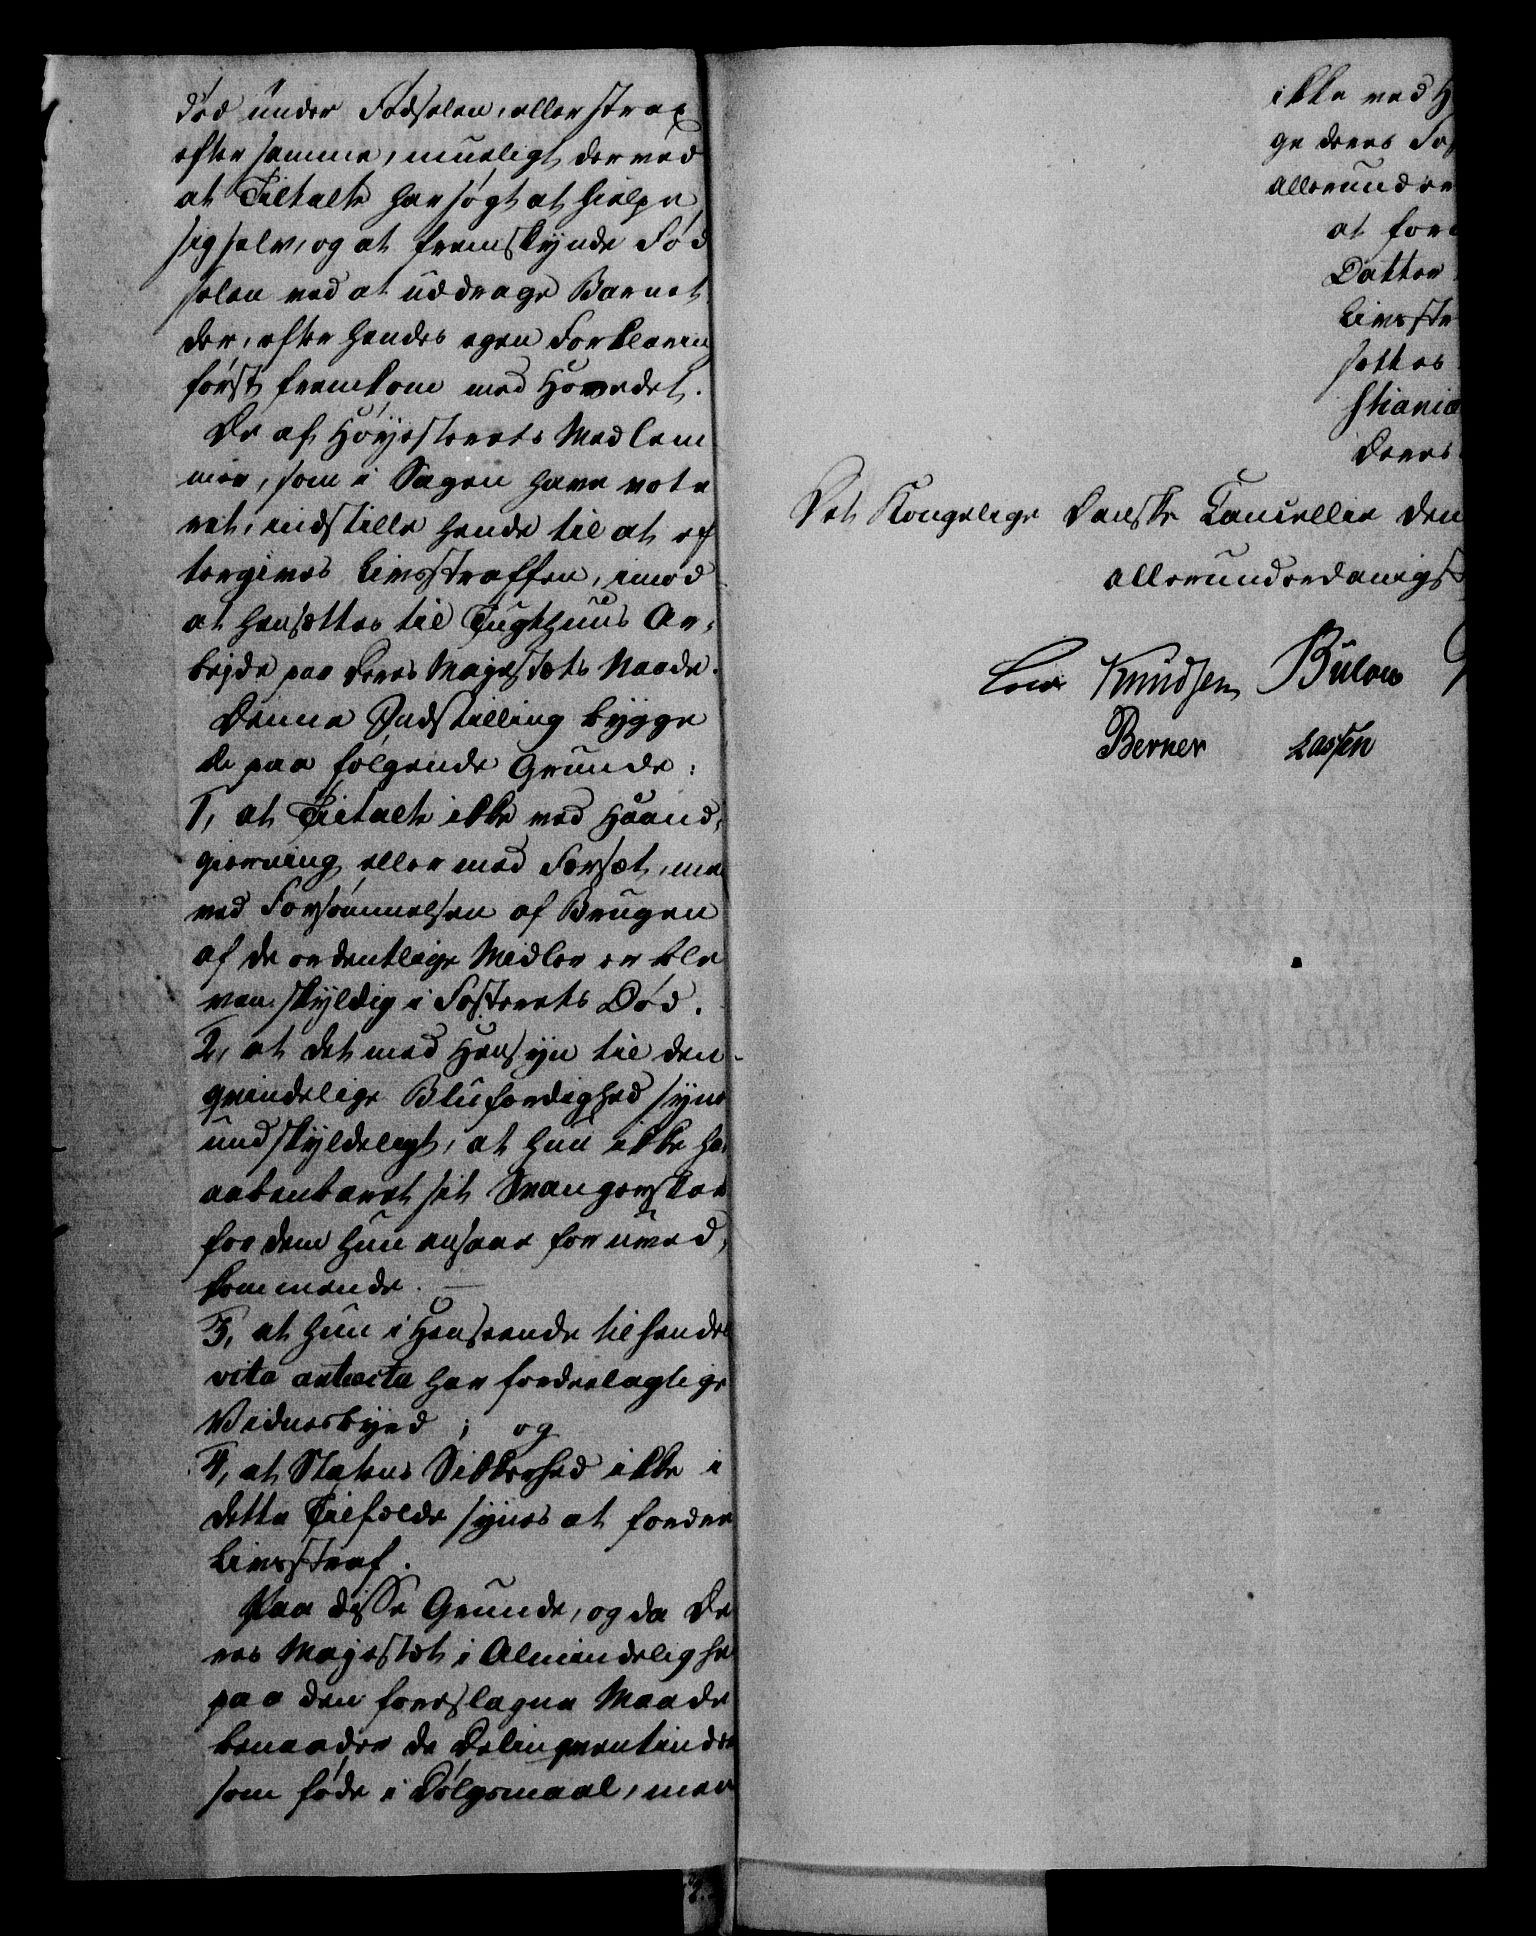 död under Födselen, eller strax
efter samme, mueligt derved
at Tiltalte har søgt at hielpe
sig selv, og at fremskynde Fød
selen ved at uddrage Barnet
der, efter hendes egen Forklaring
først fremkom med Hovedet.
De af Høyesterets Medlem
mer, som i Sagen have vote
ret, indstille hende til at ef
tergives Livsstraffen, imod
at hensættes til Tugthuus Ar-
bejde paa Deres Majestæts Naade.
Denne Indstilling bygge
de paa følgende Grunde:
1, at Tiltalte ikke ved Haand-
gierning eller med Forsæt, men
ved Forsømmelsen af Brugen
af de ordentlige Midler er ble
ven skyldig i Fosterets Død.
2, at det med Hensyn til den
qvindelige Blufærdighed synes
undskyldeligt, at hun ikke har
aabenbaret sit Svangerskab
for dem hun ansaae for uved-
kommende. —
3, at hun i Henseende til hendes
vita anteacta har fordeelagtige
Vidnesbyrd; og
4, at Statens Sikkerhed ikke i
dette Tilfælde synes at fordre
Livsstraf.
Paa disse Grunde, og da De
res Majestæt i Almindelighed
paa den foreslagne Maade
benaader de Delinqventinder
som føde i Dølgsmaal, men
ikke ved H
ge deres Fos
allerunder
at fore
Datter
Livsstr
sættes
stiania
Deres
Det Kongelige Danske Cancellie den
allerunderdanigst
Knudsen Bülow
Berner Lassen